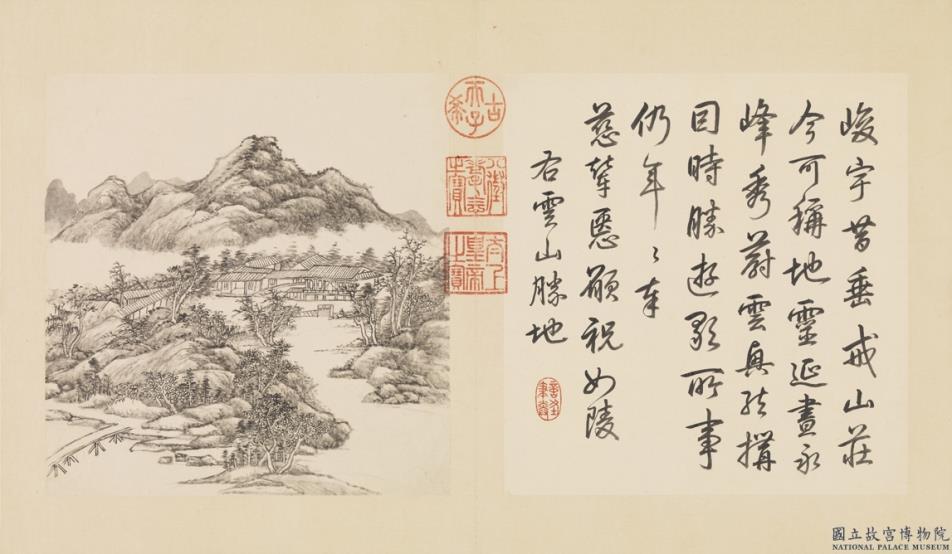 峻宇昔垂戒山莊
今可稱地靈延晝永
峰秀蔚雲興結搆
因時勝遊歌所事
仍年〻奉
慈輦願祝如陵
右雲山勝地
古希天子
八徵耄念之寶
太上皇帝之寶
國立故宮博物院
NATIONAL PALACE MUSEUM